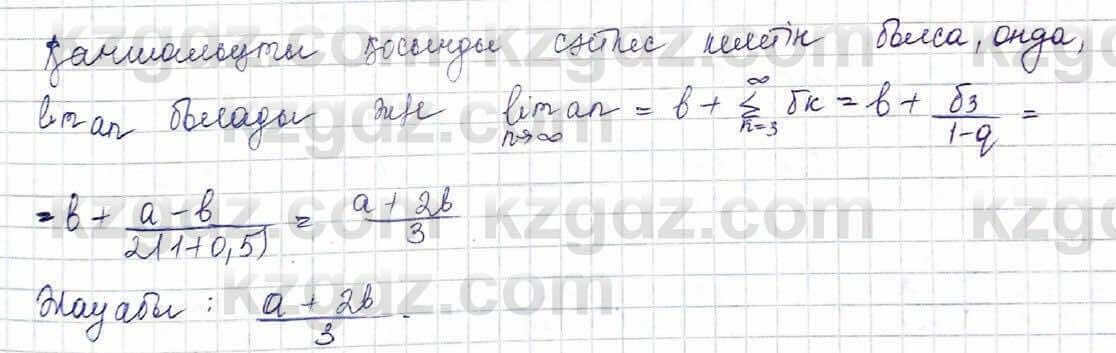 қосынды сәйкес келетін болса, онда,
lim an болады және lim n→∞ an = b + ∞ Σ n=3 бк = b + б3/(1-q) =
= b + (a-b)/(2(1+0,5)) = (a+2b)/3
Жауабы: (a+2b)/3.
kzgdz.com